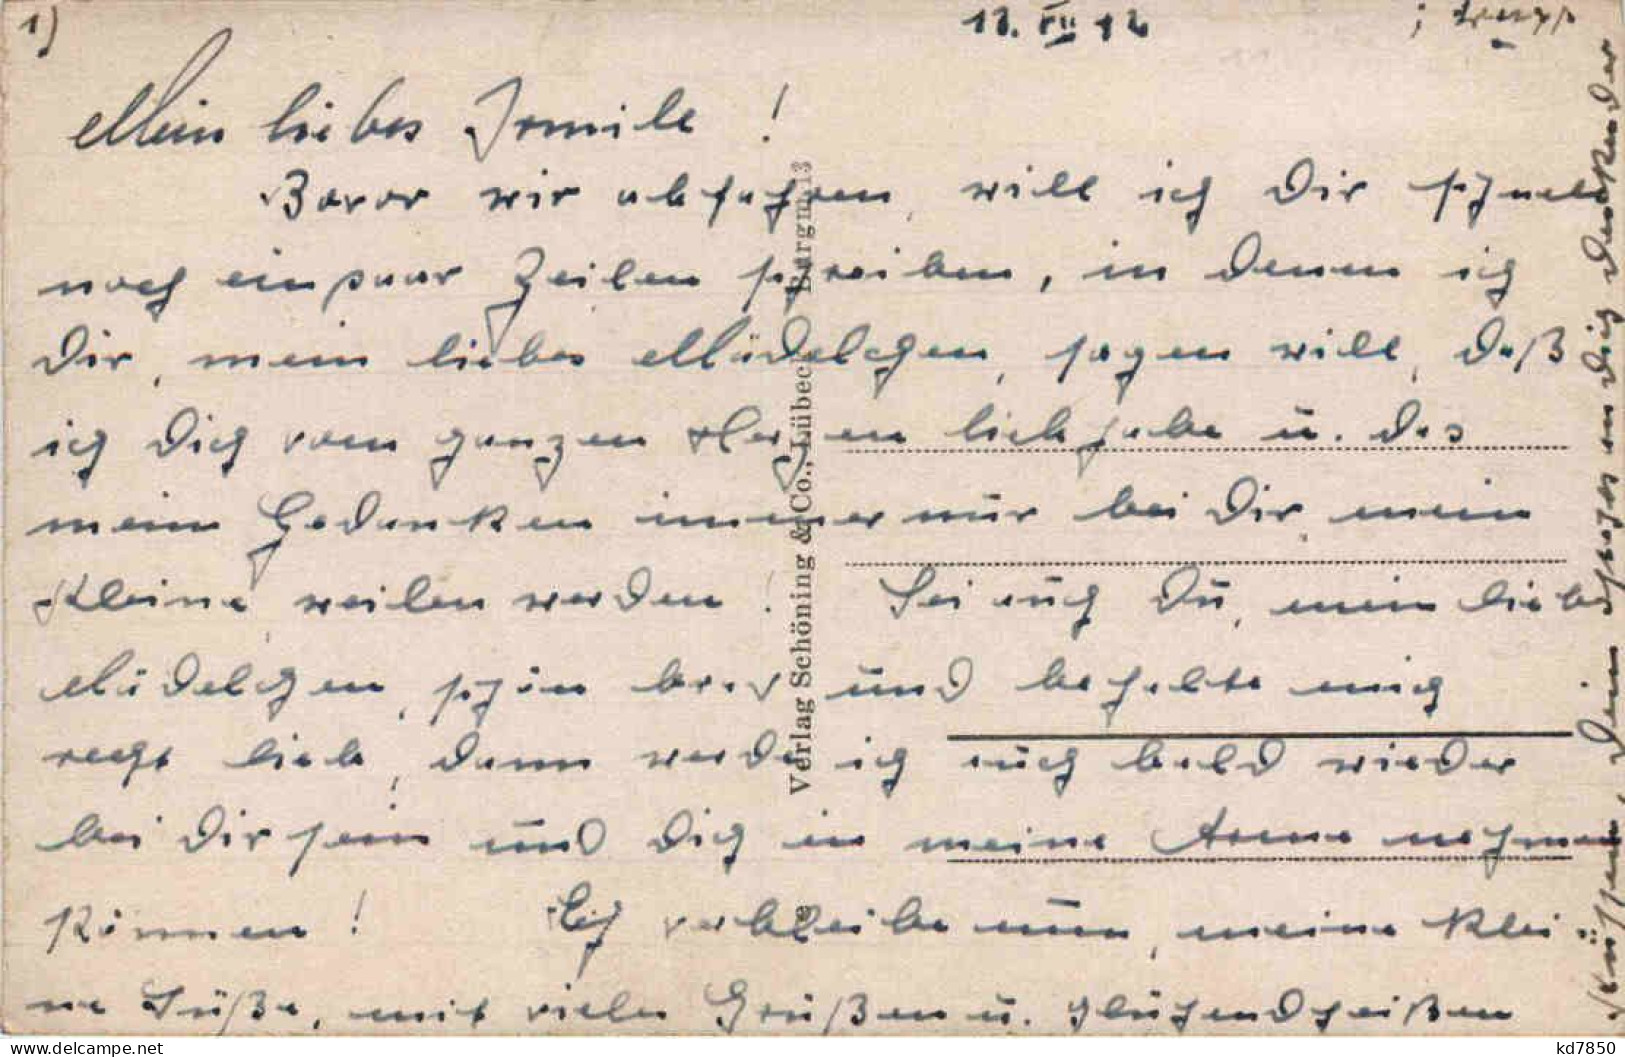 1)
Mein liebes Irmile !
Bevor wir abfahren, will ich Dir schnell
noch ein paar Zeilen schreiben, in denen ich
Dir, mein liebes Mädelchen, sagen will, daß
ich Dich vom ganzen Herzen lieb habe u. das
mein Gedanken immer nur bei Dir mein
Kleine weilen werden ! Sei auch Du, mein liebes
Mädelchen, schön brav und behalte mich
recht lieb, dann werde ich auch bald wieder
bei Dir sein und Dich in meine Arme nehmen
können ! Ich verbleibe nun, meine klei-
ne Süße, mit vielen Grüßen u. glühendheißen
Küssen, Dein stets an Dich denkender
Verlag Schöning & Co., Lübeck
kd7850